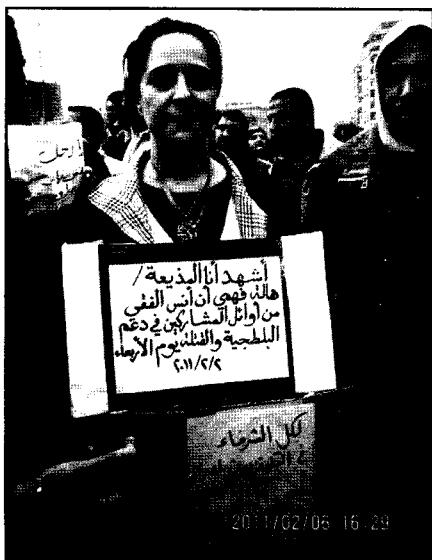 أشهد أنا المذيعة /
هالة فهمي أن أنس الفقي
من أوائل المشاركين في دعم
البلطجية والقتلة يوم الأربعاء
٢٠١١/٢/٢
لكل الشرفاء
2011/02/06 16:29